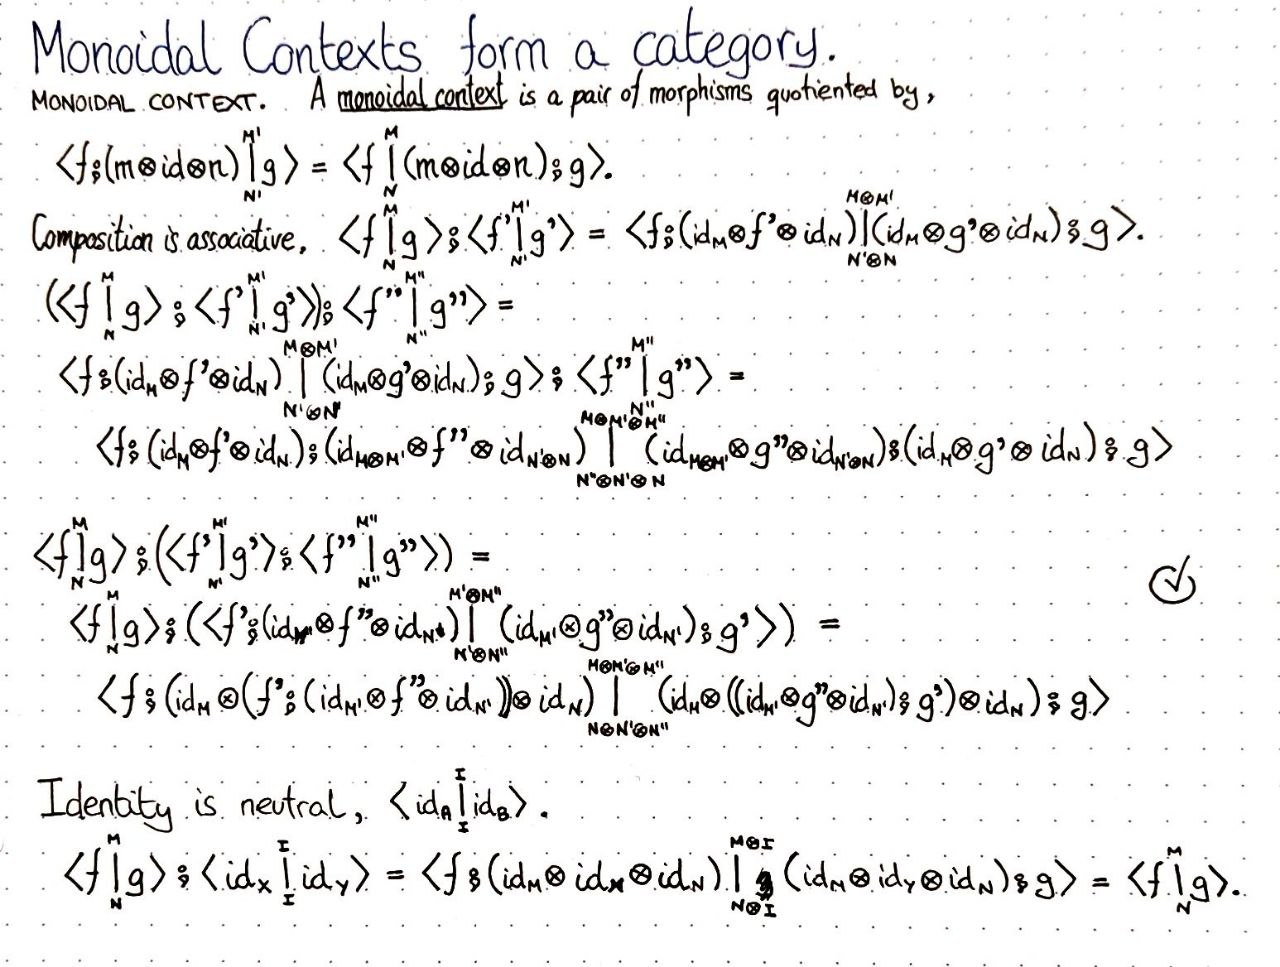 Monoidal Contexts form a category.
MONOIDAL CONTEXT. A monoidal context is a pair of morphisms quotiented by,
⟨f⨾(m⊗id⊗n) |^{M'}_{N'} g⟩ = ⟨f |^{M}_{N} (m⊗id⊗n)⨾g⟩.
Composition is associative, ⟨f |^{M}_{N} g⟩⨾⟨f' |^{M'}_{N'} g'⟩ = ⟨f⨾(id_M⊗f'⊗id_N) |^{M⊗M'}_{N'⊗N} (id_M⊗g'⊗id_N)⨾g⟩.
(⟨f |^{M}_{N} g⟩⨾⟨f' |^{M'}_{N'} g'⟩)⨾⟨f'' |^{M''}_{N''} g''⟩ =
⟨f⨾(id_M⊗f'⊗id_N) |^{M⊗M'}_{N'⊗N} (id_M⊗g'⊗id_N)⨾g⟩⨾⟨f'' |^{M''}_{N''} g''⟩ =
⟨f⨾(id_M⊗f'⊗id_N)⨾(id_{M⊗M'}⊗f''⊗id_{N'⊗N}) |^{M⊗M'⊗M''}_{N''⊗N'⊗N} (id_{M⊗M'}⊗g''⊗id_{N'⊗N})⨾(id_M⊗g'⊗id_N)⨾g⟩
⟨f |^{M}_{N} g⟩⨾(⟨f' |^{M'}_{N'} g'⟩⨾⟨f'' |^{M''}_{N''} g''⟩) =
⟨f |^{M}_{N} g⟩⨾(⟨f'⨾(id_{M'}⊗f''⊗id_{N'}) |^{M'⊗M''}_{N'⊗N''} (id_{M'}⊗g''⊗id_{N'})⨾g'⟩) =
⟨f⨾(id_M⊗(f'⨾(id_{M'}⊗f''⊗id_{N'}))⊗id_N) |^{M⊗M'⊗M''}_{N⊗N'⊗N''} (id_M⊗((id_{M'}⊗g''⊗id_{N'})⨾g')⊗id_N)⨾g⟩
Identity is neutral, ⟨id_A |^{I}_{I} id_B⟩.
⟨f |^{M}_{N} g⟩⨾⟨id_X |^{I}_{I} id_Y⟩ = ⟨f⨾(id_M⊗id_X⊗id_N) |^{M⊗I}_{N⊗I} (id_M⊗id_Y⊗id_N)⨾g⟩ = ⟨f |^{M}_{N} g⟩.